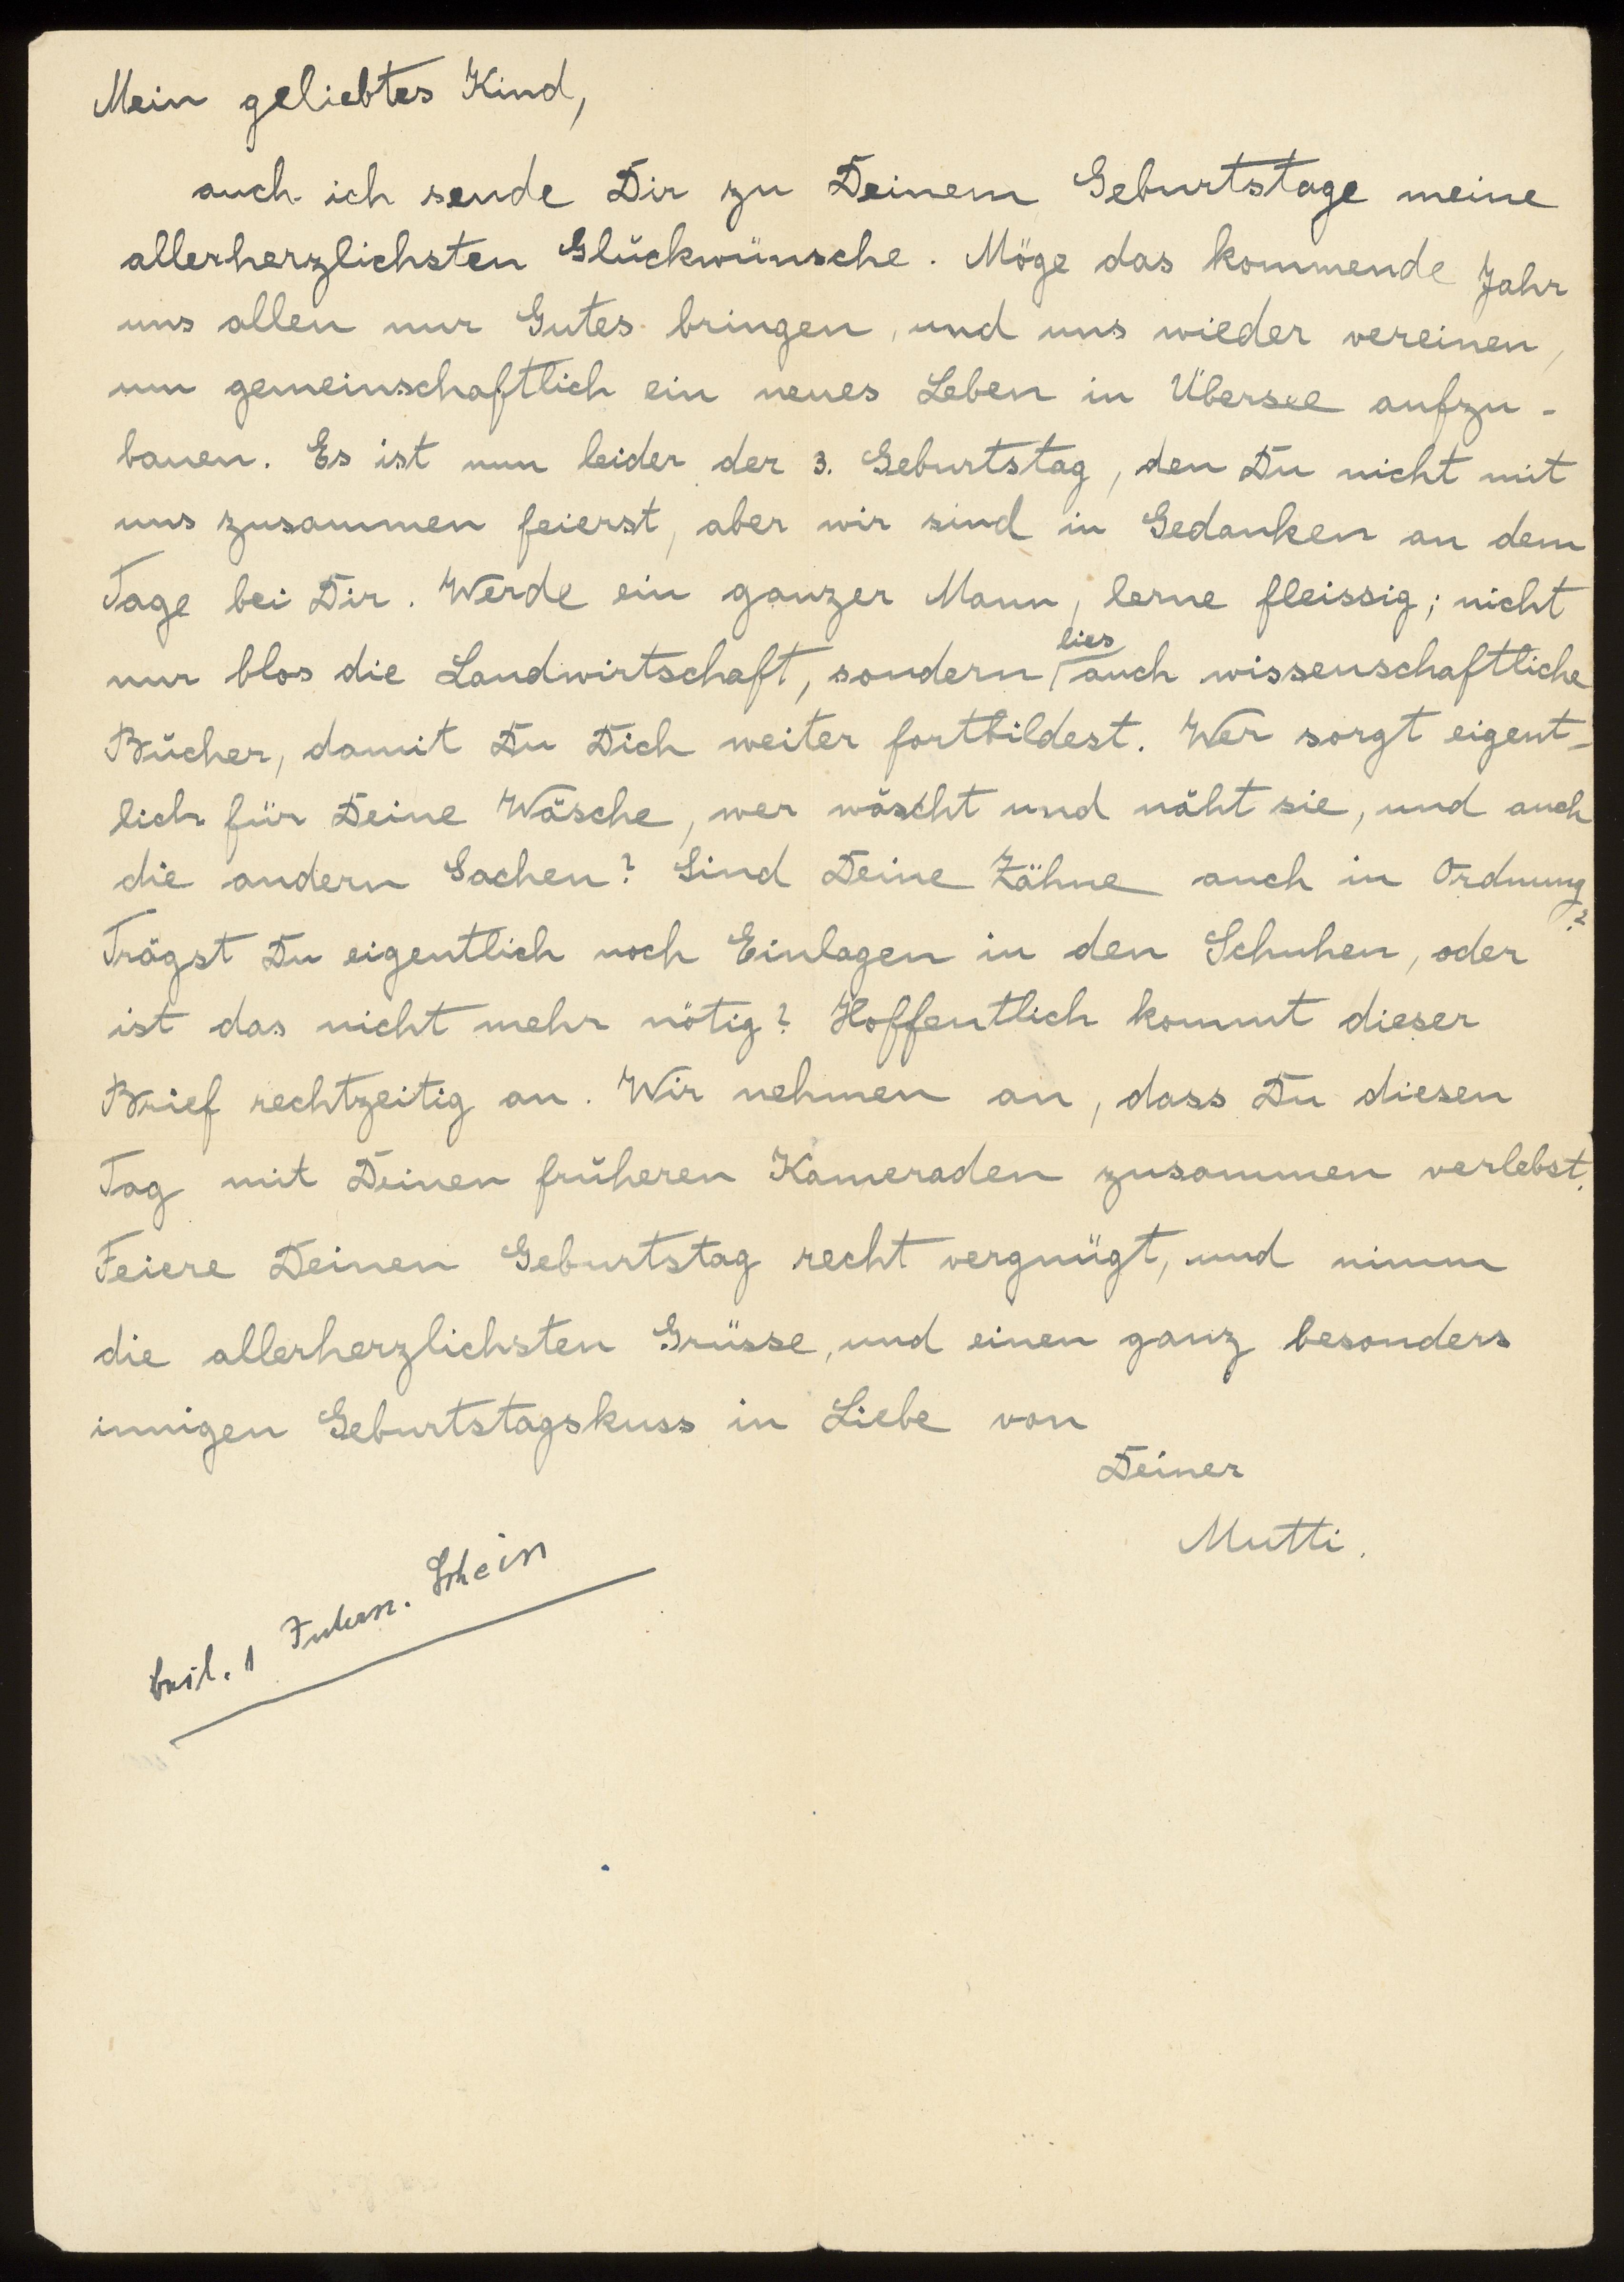 Mein geliebtes Kind,
auch ich sende Dir zu Deinem Geburtstage meine
allerherzlichsten Glückwünsche. Möge das kommende Jahr
uns allen nur Gutes bringen, und uns wieder vereinen,
um gemeinschaftlich ein neues Leben in Übersee aufzu-
bauen. Es ist nun leider der 3. Geburtstag, den Du nicht mit
uns zusammen feierst, aber wir sind in Gedanken an dem
Tage bei Dir. Werde ein ganzer Mann, lerne fleissig; nicht
nur blos die Landwirtschaft, sondern lies auch wissenschaftliche
Bücher, damit Du Dich weiter fortbildest. Wer sorgt eigent-
lich für Deine Wäsche, wer wäscht und näht sie, und auch
die andern Sachen? Sind Deine Zähne auch in Ordnung?
Trägst Du eigentlich noch Einlagen in den Schuhen, oder
ist das nicht mehr nötig? Hoffentlich kommt dieser
Brief rechtzeitig an. Wir nehmen an, dass Du diesen
Tag mit Deinen früheren Kameraden zusammen verlebst.
Feiere Deinen Geburtstag recht vergnügt, und nimm
die allerherzlichsten Grüsse, und einen ganz besonders
innigen Geburtstagskuss in Liebe von
Deiner
Mutti.
beil. 1 Intern. Schein